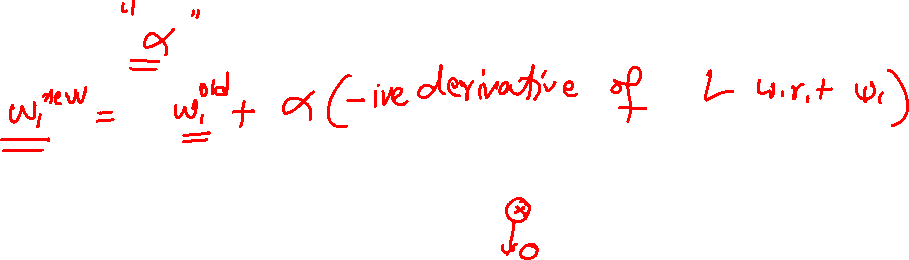 "α"
w₁ⁿᵉʷ = w₁ᵒˡᵈ + α (-ive derivative of L w.r.t w₁)
x
0